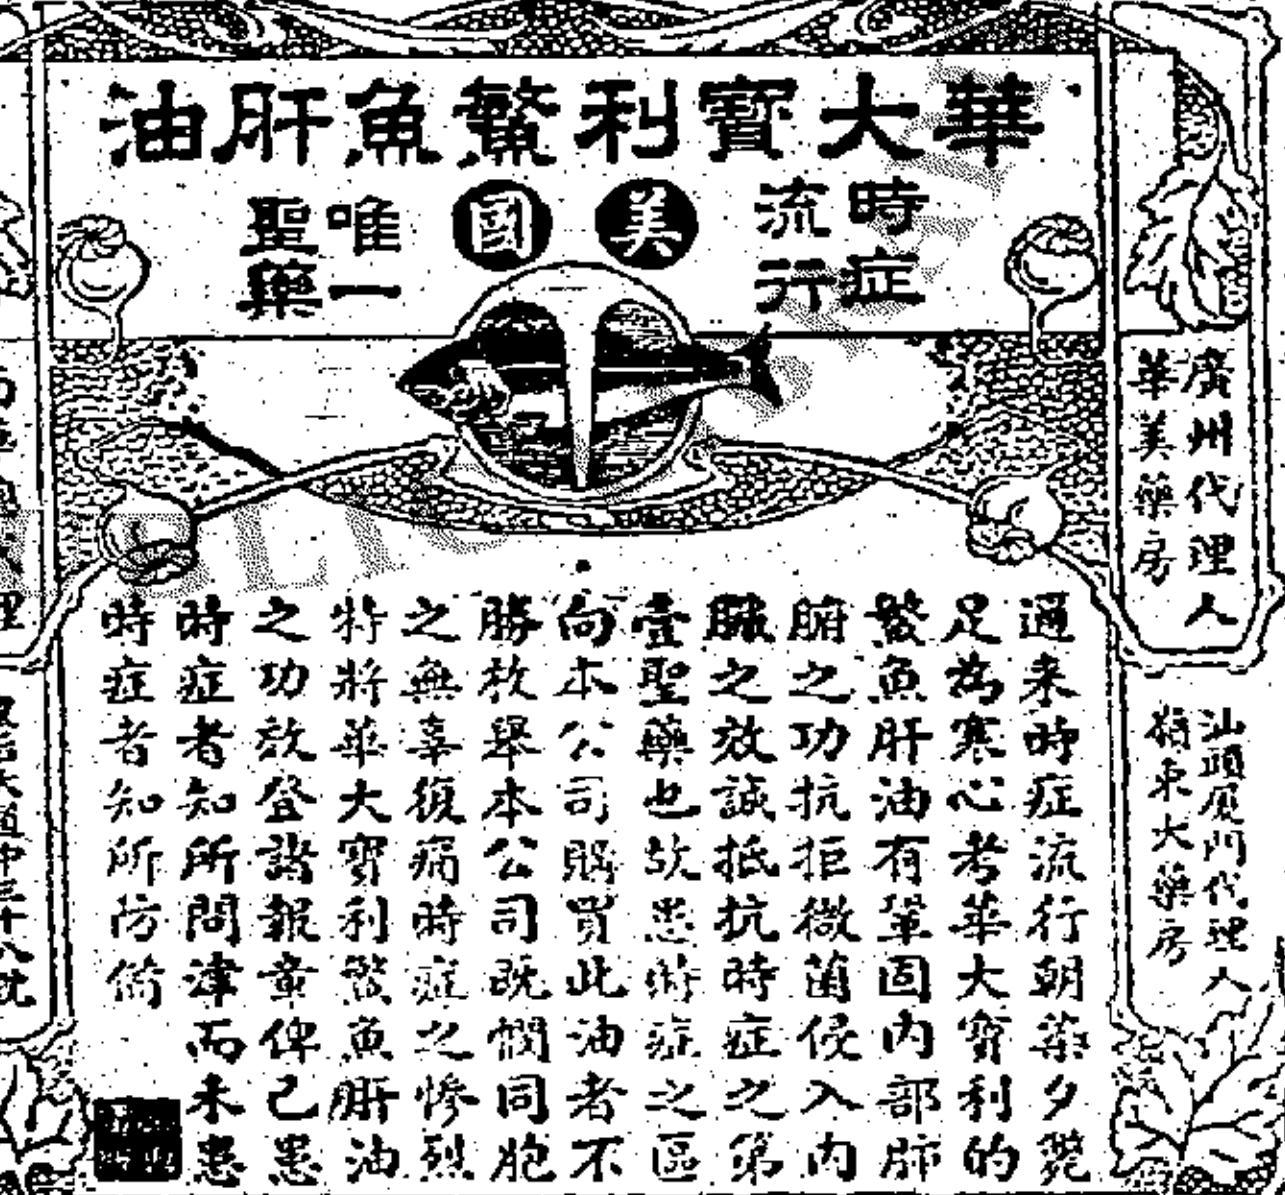 華大寶利鰵魚肝油
時症
流行
美國
唯一
聖藥
廣州代理人
華美藥房
汕頭厦門代理人
嶺東大藥房
邇来時症流行朝染夕斃
足為寒心考華大寶利的
鰵魚肝油有鞏固内部肺
腑之功抗拒微菌侵入内
臟之效誠抵抗時症之第
壹聖藥也故患時症之區
向本公司購買此油者不
勝枚舉本公司既憫同胞
之無辜復痛時症之慘烈
特將華大寶利鰵魚肝油
之功效登諸報章俾己患
時症者知所問津而未患
時症者知所防備
大道中三十八號